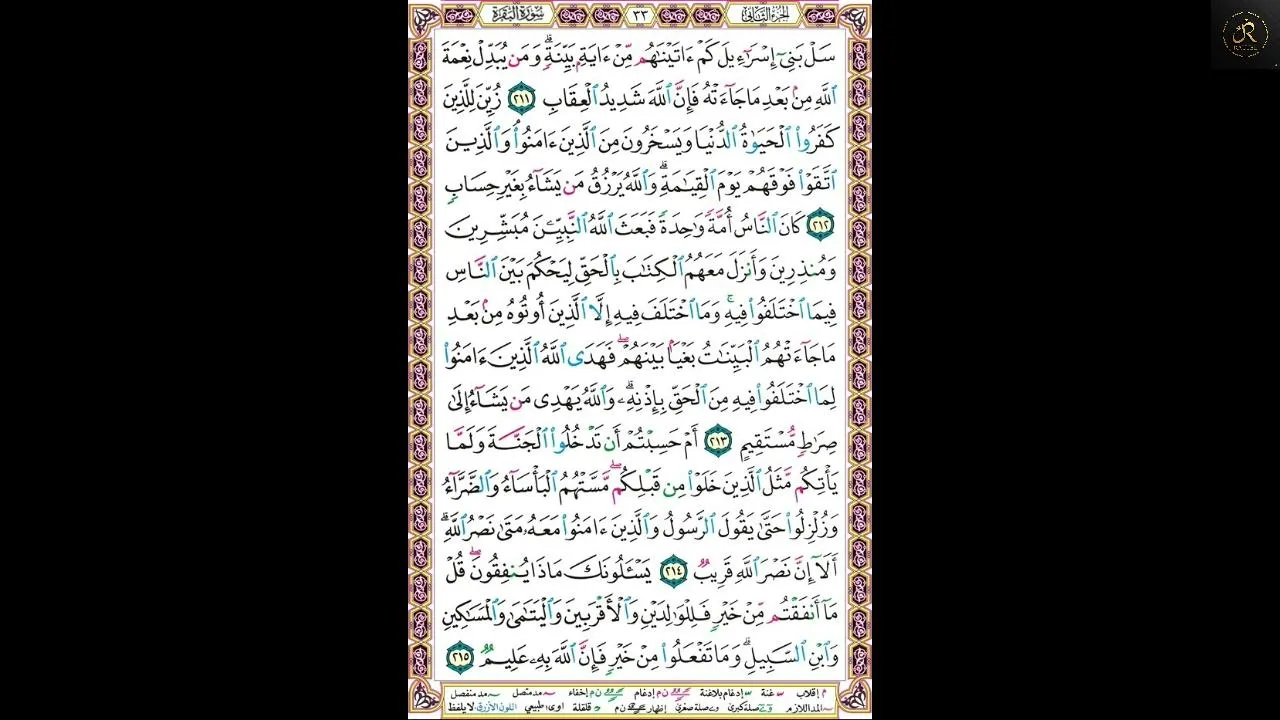 الجزء الثاني
٣٣
سورة البقرة
سَلْ بَنِىٓ إِسْرَٰٓءِيلَ كَمْ ءَاتَيْنَٰهُم مِّنْ ءَايَةِۭ بَيِّنَةٍۗ وَمَن يُبَدِّلْ نِعْمَةَ
ٱللَّهِ مِنۢ بَعْدِ مَا جَآءَتْهُ فَإِنَّ ٱللَّهَ شَدِيدُ ٱلْعِقَابِ ٢١١ زُيِّنَ لِلَّذِينَ
كَفَرُوا۟ ٱلْحَيَوٰةُ ٱلدُّنْيَا وَيَسْخَرُونَ مِنَ ٱلَّذِينَ ءَامَنُوا۟ۘ وَٱلَّذِينَ
ٱتَّقَوْا۟ فَوْقَهُمْ يَوْمَ ٱلْقِيَٰمَةِۗ وَٱللَّهُ يَرْزُقُ مَن يَشَآءُ بِغَيْرِ حِسَابٍ
٢١٢ كَانَ ٱلنَّاسُ أُمَّةً وَٰحِدَةً فَبَعَثَ ٱللَّهُ ٱلنَّبِيِّـۧنَ مُبَشِّرِينَ
وَمُنذِرِينَ وَأَنزَلَ مَعَهُمُ ٱلْكِتَٰبَ بِٱلْحَقِّ لِيَحْكُمَ بَيْنَ ٱلنَّاسِ
فِيمَا ٱخْتَلَفُوا۟ فِيهِۚ وَمَا ٱخْتَلَفَ فِيهِ إِلَّا ٱلَّذِينَ أُوتُوهُ مِنۢ بَعْدِ
مَا جَآءَتْهُمُ ٱلْبَيِّنَٰتُ بَغْيًۢا بَيْنَهُمْۖ فَهَدَى ٱللَّهُ ٱلَّذِينَ ءَامَنُوا۟
لِمَا ٱخْتَلَفُوا۟ فِيهِ مِنَ ٱلْحَقِّ بِإِذْنِهِۦۗ وَٱللَّهُ يَهْدِى مَن يَشَآءُ إِلَىٰ
صِرَٰطٍ مُّسْتَقِيمٍ ٢١٣ أَمْ حَسِبْتُمْ أَن تَدْخُلُوا۟ ٱلْجَنَّةَ وَلَمَّا
يَأْتِكُم مَّثَلُ ٱلَّذِينَ خَلَوْا۟ مِن قَبْلِكُمۖ مَّسَّتْهُمُ ٱلْبَأْسَآءُ وَٱلضَّرَّآءُ
وَزُلْزِلُوا۟ حَتَّىٰ يَقُولَ ٱلرَّسُولُ وَٱلَّذِينَ ءَامَنُوا۟ مَعَهُۥ مَتَىٰ نَصْرُ ٱللَّهِۗ
أَلَآ إِنَّ نَصْرَ ٱللَّهِ قَرِيبٌ ٢١٤ يَسْـَٔلُونَكَ مَاذَا يُنفِقُونَۖ قُلْ
مَآ أَنفَقْتُم مِّنْ خَيْرٍ فَلِلْوَٰلِدَيْنِ وَٱلْأَقْرَبِينَ وَٱلْيَتَٰمَىٰ وَٱلْمَسَٰكِينِ
وَٱبْنِ ٱلسَّبِيلِۗ وَمَا تَفْعَلُوا۟ مِنْ خَيْرٍ فَإِنَّ ٱللَّهَ بِهِۦ عَلِيمٌ ٢١٥
م إقلاب غنة إدغام بلاغنة ن م إدغام ن م إخفاء مد متصل مد منفصل
المد اللازم صلة كبرى صلة صغرى إظهار ن م قلقلة اوى طبيعي اللون الأزرق لا يلفظ